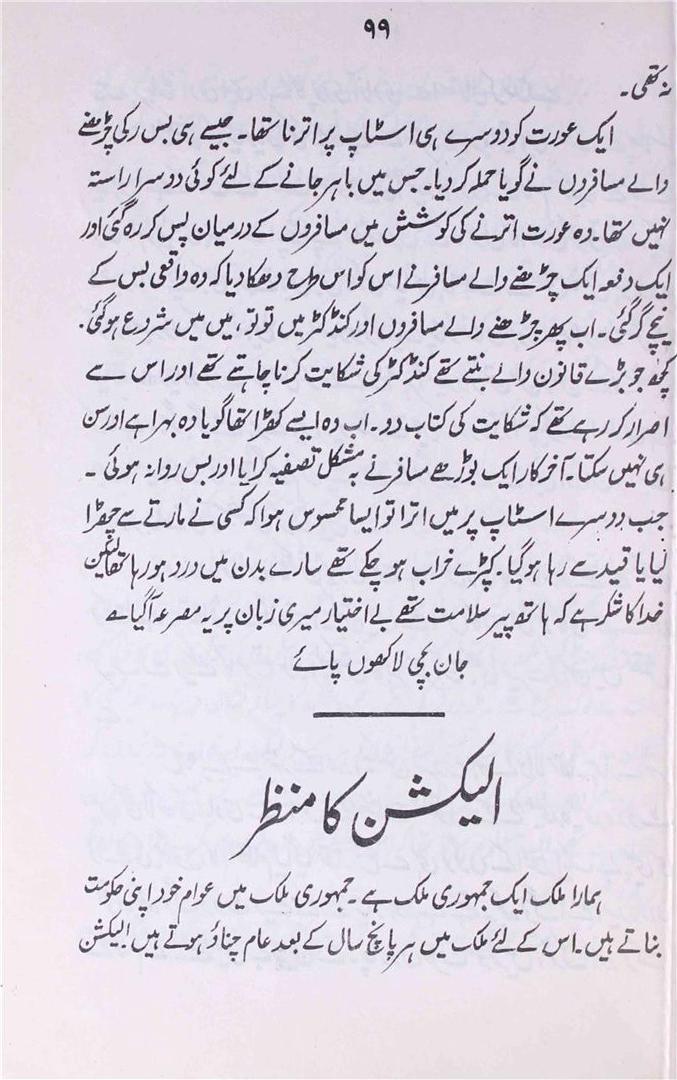 ۹۹
نہ تھی۔
ایک عورت کو دوسرے ہی اسٹاپ پر اترنا تھا۔ جیسے ہی بس رکی چڑھنے
والے مسافروں نے گویا حملہ کر دیا۔ جس میں باہر جانے کے لئے کوئی دوسرا راستہ
نہیں تھا۔ وہ عورت اترنے کی کوشش میں مسافروں کے درمیان پس کر رہ گئی اور
ایک دفعہ ایک چڑھنے والے مسافر نے اس کو اس طرح دھکا دیا کہ وہ واقعی بس کے
نیچے گر گئی۔ اب پھر چڑھنے والے مسافروں اور کنڈکٹر میں تو تو، میں میں شروع ہو گئی۔
کچھ جو بڑے قانون والے بنتے تھے کنڈکٹر کی شکایت کرنا چاہتے تھے اور اس سے
اصرار کر رہے تھے کہ شکایت کی کتاب دو۔ اب وہ ایسے کھڑا تھا گویا وہ بہرا ہے اور سن
ہی نہیں سکتا۔ آخر کار ایک بوڑھے مسافر نے بہ مشکل تصفیہ کرایا اور بس روانہ ہوئی۔
جب دوسرے اسٹاپ پر میں اترا تو ایسا محسوس ہوا کہ کسی نے مارتے سے چھڑا
لیا یا قید سے رہا ہو گیا۔ کپڑے خراب ہو چکے تھے سارے بدن میں درد ہو رہا تھا لیکن
خدا کا شکر ہے کہ ہاتھ پیر سلامت تھے بے اختیار میری زبان پر یہ مصرعہ آ گیا ؎
جان بچی لاکھوں پائے
الیکشن کا منظر
ہمارا ملک ایک جمہوری ملک ہے۔ جمہوری ملک میں عوام خود اپنی حکومت
بناتے ہیں۔ اس کے لئے ملک میں ہر پانچ سال کے بعد عام چناؤ ہوتے ہیں الیکشن